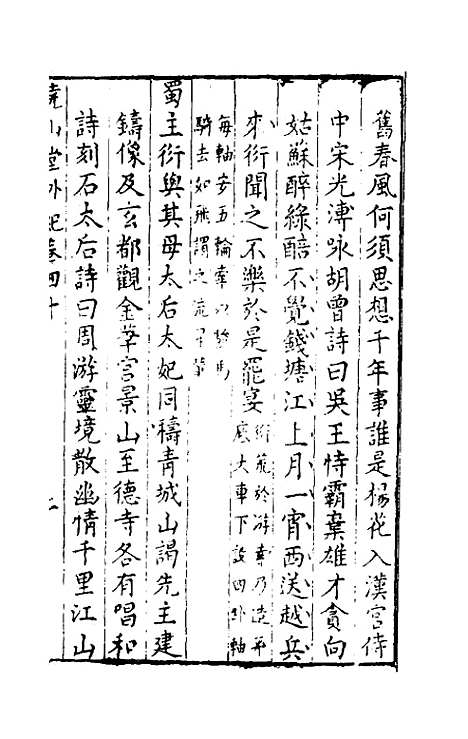 舊春風何須思想千年事誰是楊花入漢宮侍
中宋光溥咏胡曾詩曰吳王恃霸棄雄才貪向
姑蘇醉綠醅不覺錢塘江上月一宵西送越兵
來衍聞之不樂於是罷宴
衍荒於游幸乃造平
底大車下設四卧軸
每軸安五輪牽以駿馬
騎去如飛謂之流星輦
蜀主衍與其母太后太妃同禱青城山謁先主建
鑄像及玄都觀金華宮景山至德寺各有唱和
詩刻石太后詩曰周游靈境散幽情千里江山
堯山堂外紀卷四十